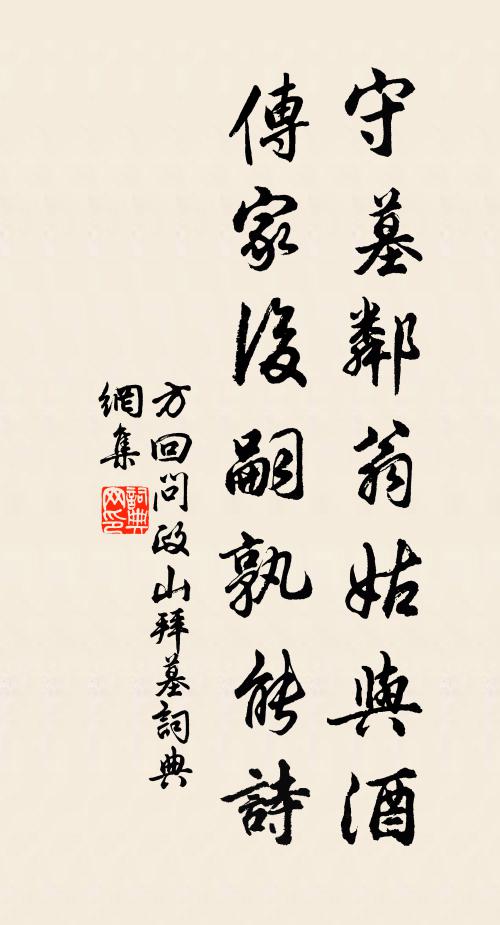 守墓鄰翁姑與酒
傳家後嗣孰能詩
方回問政山拜墓詞典
網集
詞典
网印